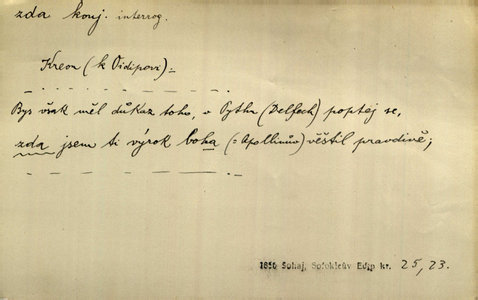 zda konj. interrog.
Kreon (k Oidipovi):
Bys však měl důkaz toho, v Pythu (Delfech) poptej se,
zda jsem ti výrok boha (= Apollinův) věštil pravdivě;
1856 Šohaj, Sofokleův Edip kr. 25, 23.